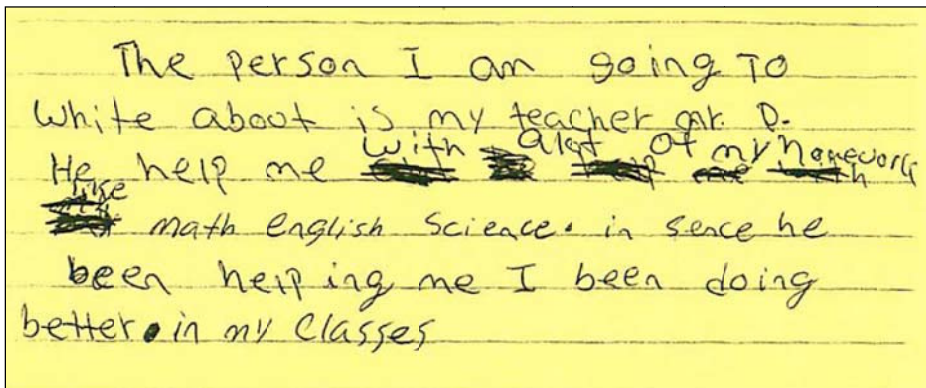 The person I am going To
white about is my teacher mr. D.
He help me with alot of my homework
like math english Science. in sence he
been helping me I been doing
better. in my Classes